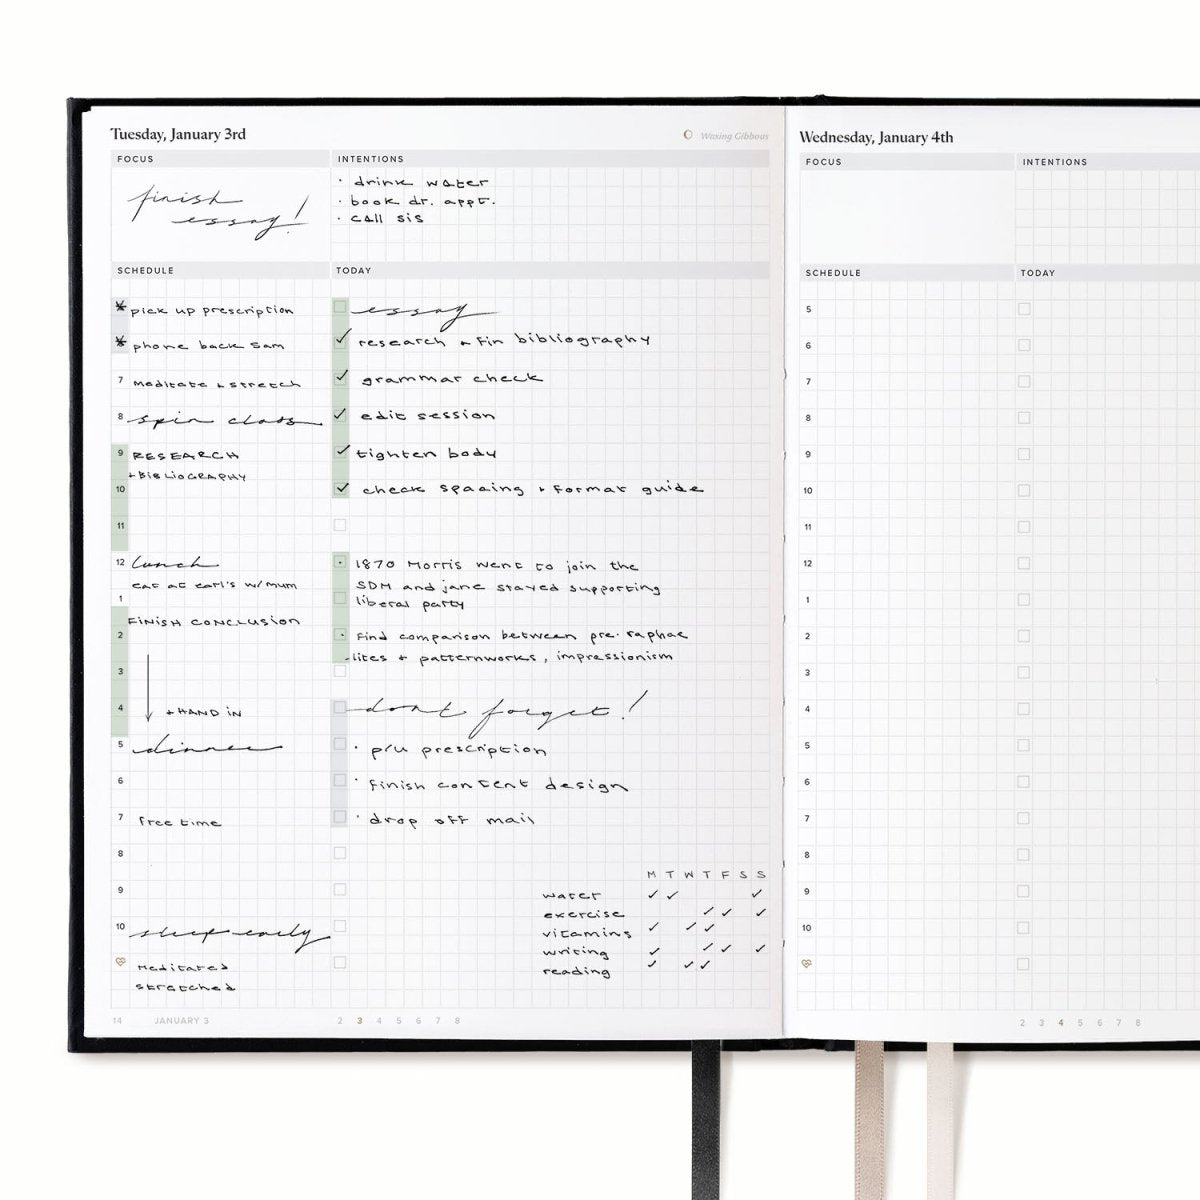 Tuesday, January 3rd
Waxing Gibbous
FOCUS
finish
essay!
INTENTIONS
· drink water
· book dr. appt.
· call sis
SCHEDULE
* pick up prescription
* phone back sam
7 meditate + stretch
8 spin class
9 RESEARCH
+ BIBLIOGRAPHY
10
11
12 lunch
eat at earl's w/ mum
1
FINISH CONCLUSION
2
3
4 + HAND IN
5 dinner
6
7 free time
8
9
10 sleep early
meditated
stretched
TODAY
essay
✓ research + fin bibliography
✓ grammar check
✓ edit session
✓ tighten body
✓ check spacing + format guide
· 1870 Morris went to join the
SDM and jane stayed supporting
liberal party
· find comparison between pre-raphae
-lites + patternworks, impressionism
dont forget!
· p/u prescription
· finish content design
· drop off mail
M T W T F S S
water ✓ ✓ ✓
exercise ✓ ✓ ✓
vitamins ✓ ✓ ✓
writing ✓ ✓ ✓ ✓
reading ✓ ✓ ✓
14 JANUARY 3
2 3 4 5 6 7 8
Wednesday, January 4th
FOCUS
INTENTIONS
SCHEDULE
TODAY
5
6
7
8
9
10
11
12
1
2
3
4
5
6
7
8
9
10
2 3 4 5 6 7 8